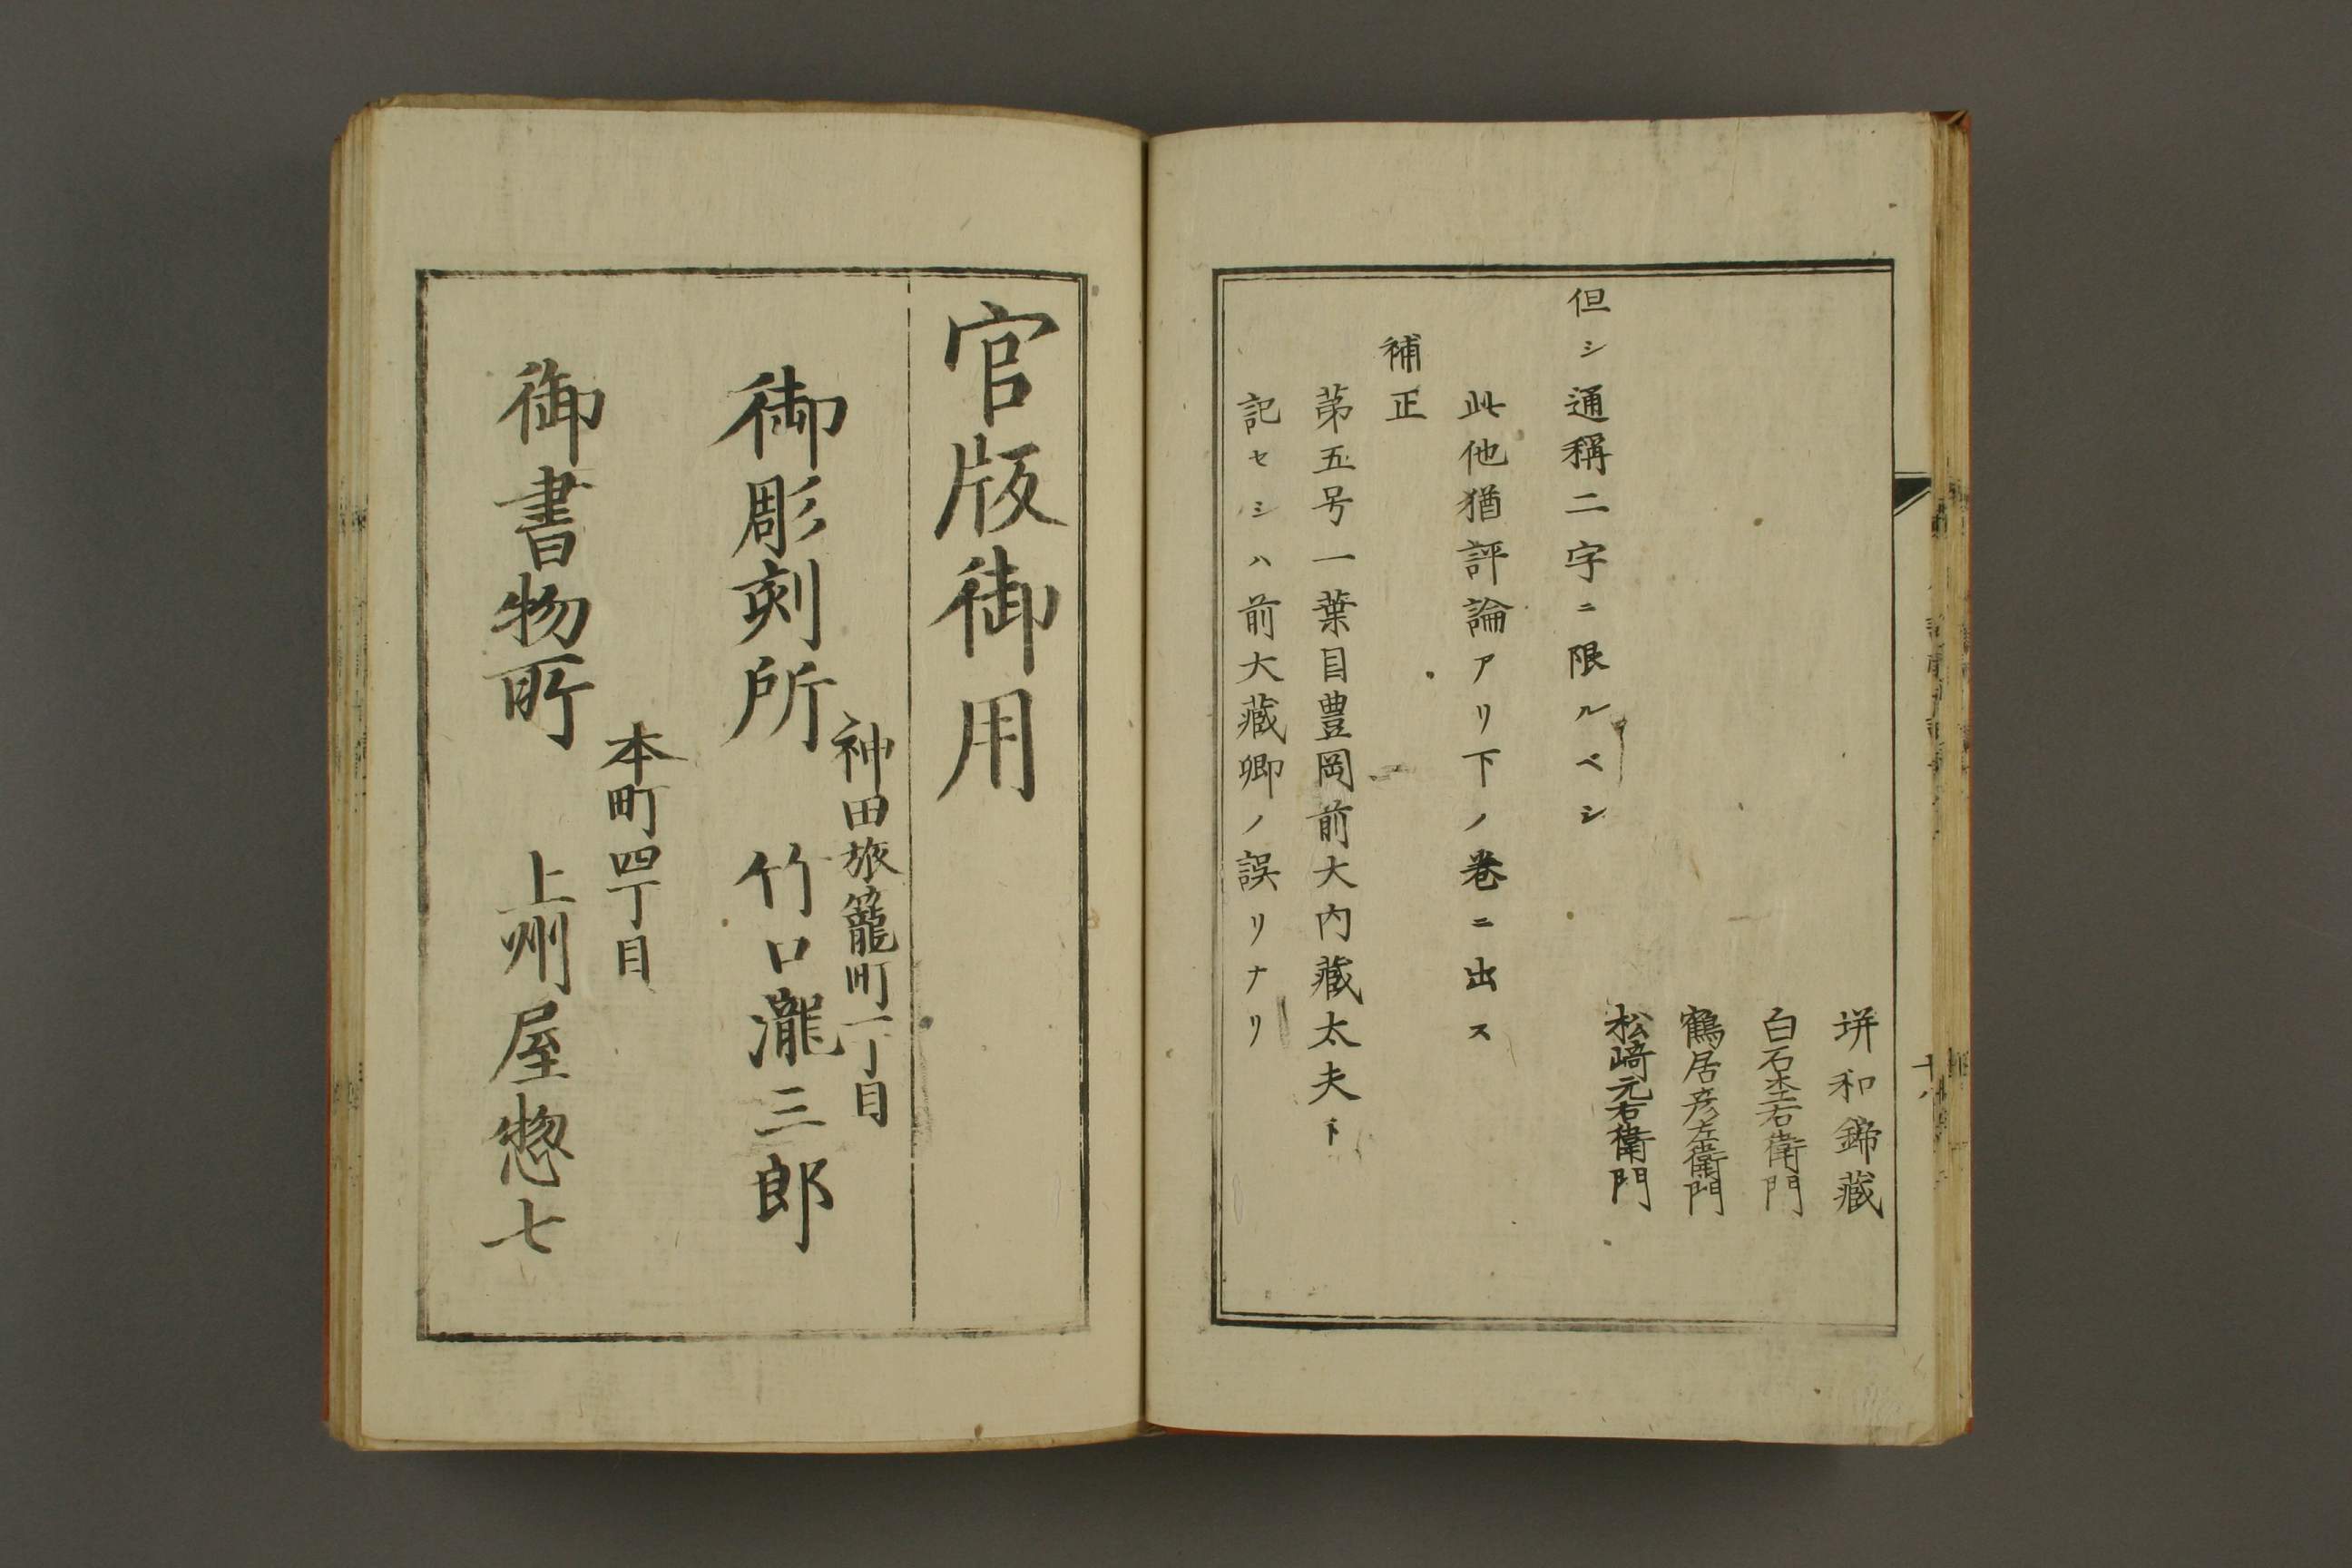 垪和錦藏
白石圶右衛門
鶴居彦左衛門
松﨑元右衛門
但シ通稱二字ニ限ルベシ
此他猶評論アリ下ノ巻ニ出ス
補正
苐五号一葉目豊岡前大内藏太夫ト
記セシハ前大藏卿ノ誤リナリ
官版御用
神田旅籠町一丁目
御彫刻所 竹口瀧三郎
本町四丁目
御書物所 上州屋惣七